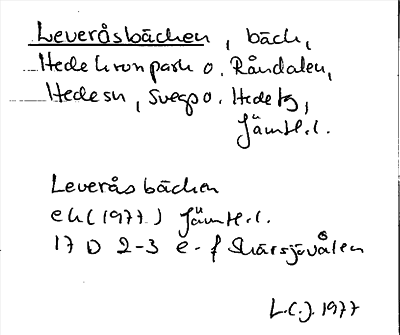 Leveråsbäcken, bäck,
Hede kronpark o. Råndalen,
Hedesn, Svegs o. Hede tg,
Jämtl.l.
Leveråsbäcken
ek (1977) Jämtl.l.
17 D 2-3 e-f Skärsjövålen
L.C.J. 1977